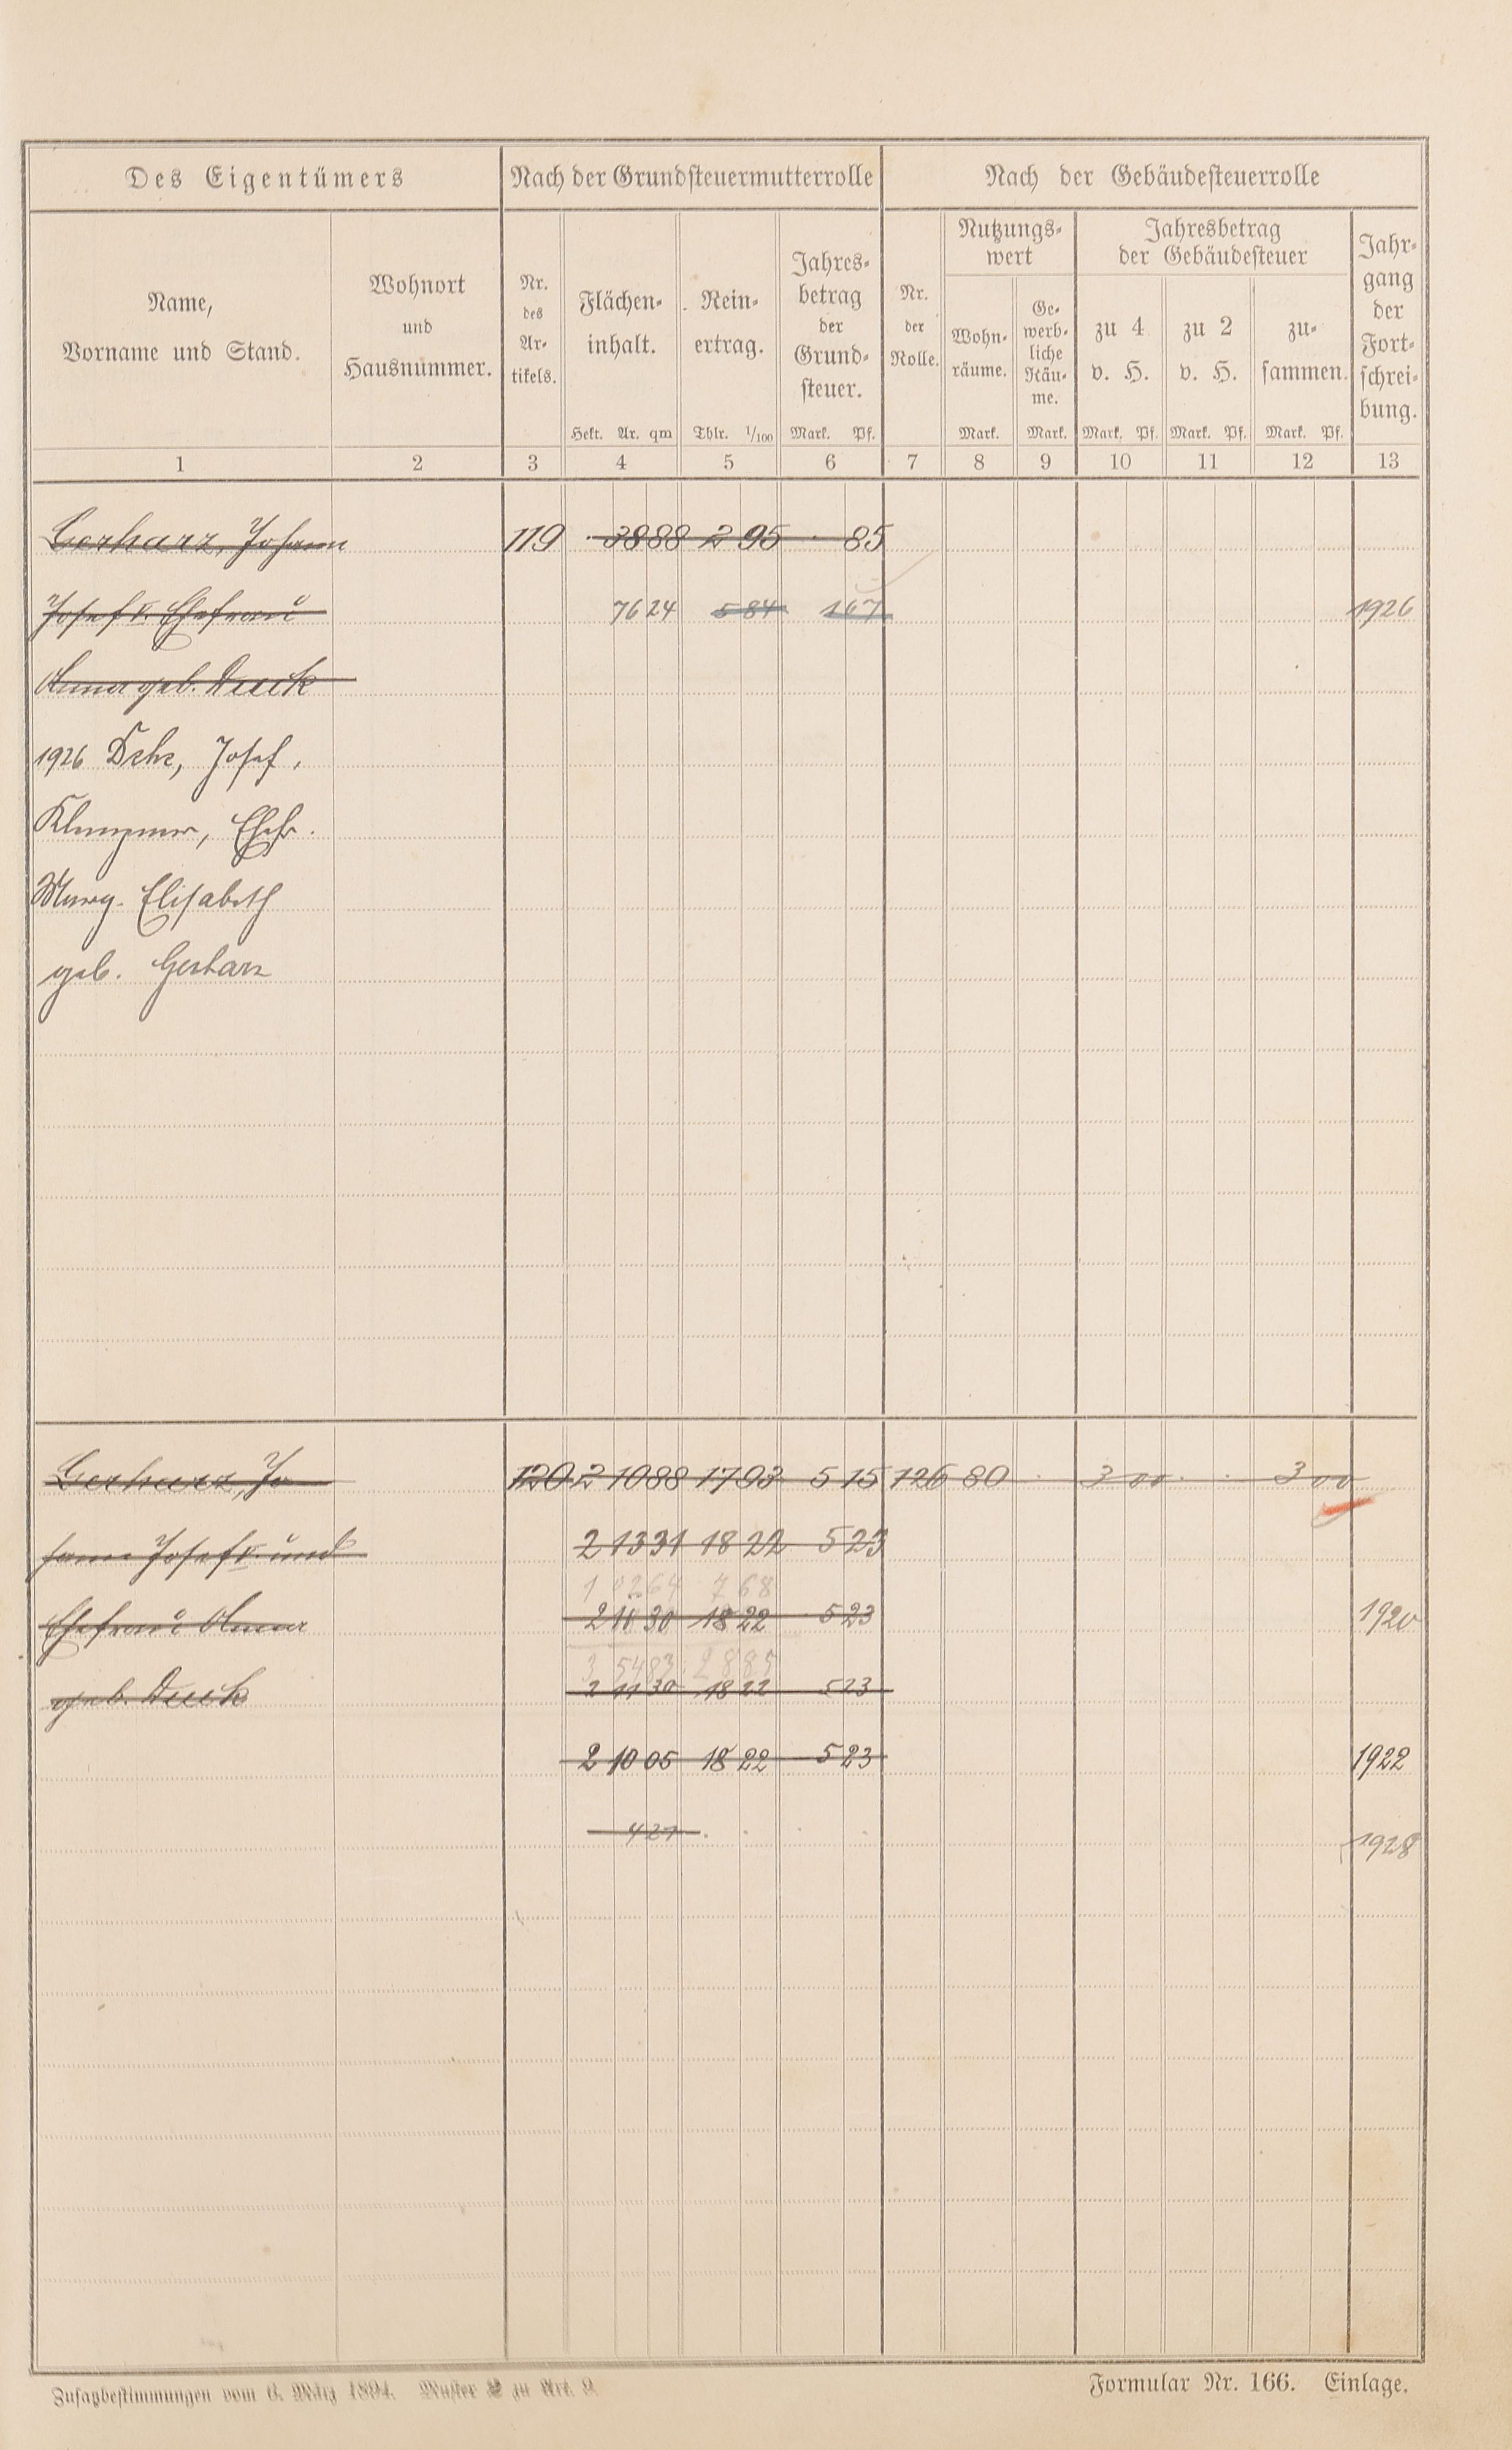 Des Eigentümers Nach der Grundsteuermutterrolle Nach der Gebäudesteuerrolle
Name,
Vorname und Stand.
Wohnort
und
Hausnummer.
Nr.
des
Ar-
tikels.
Flächen-
inhalt.
Hekt. Ar. qm
Rein-
ertrag.
Thlr. 1/100
Jahres-
betrag
der
Grund-
steuer.
Mark. Pf.
Nr.
der
Rolle.
Nutzungs-
wert
Wohn-
räume.
Mark.
Ge-
werb-
liche
Räu-
me.
Mark.
Jahresbetrag
der Gebäudesteuer
zu 4
v. H.
Mark. Pf.
zu 2
v. H.
Mark. Pf.
zu-
sammen.
Mark. Pf.
Jahr-
gang
der
Fort-
schrei-
bung.
1 2 3 4 5 6 7 8 9 10 11 12 13
Gerharz, Johann 119 38 88 2 95 85
Josef V. Ehefrau 76 24 5 84 1 67 1926
Anna geb. Duck
1926 Josef,
Klempner, Ehefr.
Marg. Elisabeth
geb. Gerharz
Gerharz, Jo 120 2 10 88 17 93 5 15 126 80 3 00 3 00
hann Josef V. und 2 13 31 18 22 5 23
1 02 64 7 68
Ehefrau Anna 2 11 30 18 22 5 23 1920
3 54 83 28 85
geb. Duck 2 11 30 18 22 5 23
2 10 05 18 22 5 23 1922
4 27 1928
Zusatzbestimmungen vom 6. März 1894. Muster zu Art. 9.
Formular Nr. 166. Einlage.